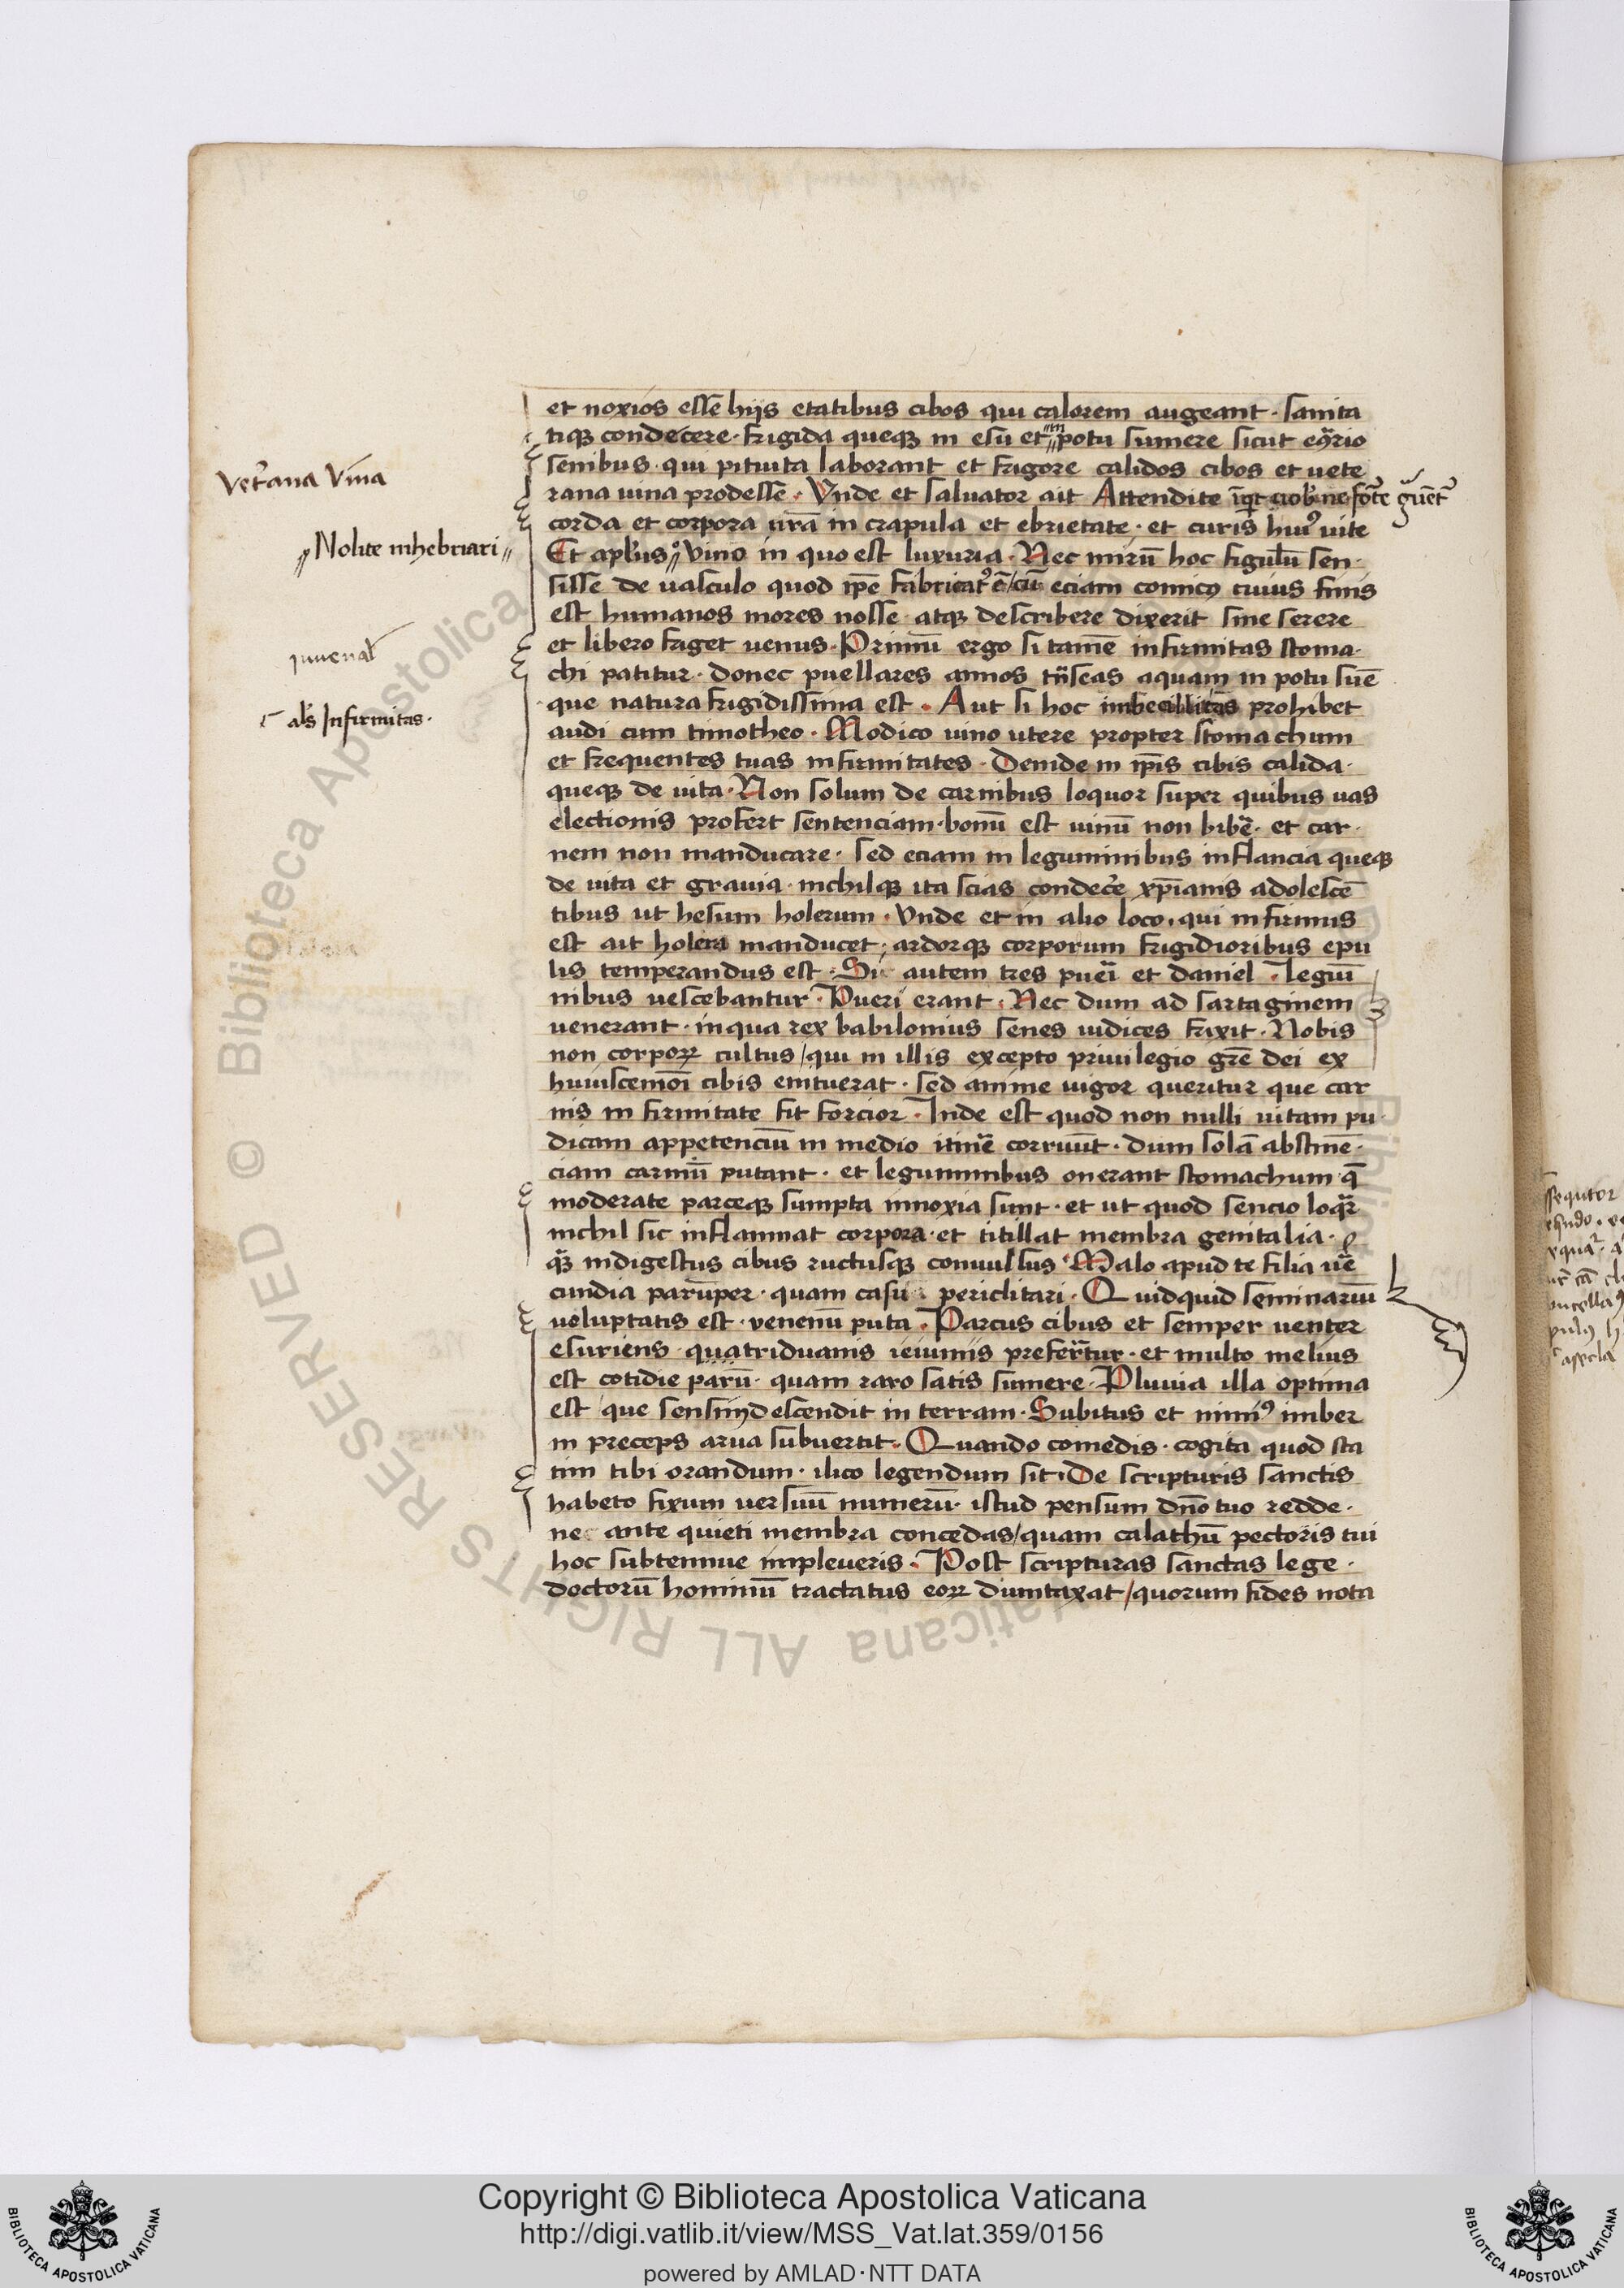 et noxios esse hijs etatibus cibos qui calorem augeant · sanita
tiq̨ condecere · frigida queq̨ in esu et in potu sumere sicut eq̄rio
senibus · qui pituita laborant et frigore calidos cibos et uete
rana uina prodesse · Vnde et saluator ait Attendite
corda et corpora ūrā in crapula et ebrietate · et curis huiꝰ uite
Et apl'us vino in quo est luxuria · Nec mirū hoc figulū sen·
sisse de uasculo quod ip̄e fabricatꝰ ē / cū eciam comicꝰ cuius finis
est humanos mores nosse · atq̨ describere dixerit sine serere
et libero friget uenus · Primū ergo si tamē infirmitas stoma·
chi patitur · donec puellares annos tn̄seas aquam in potu sūē
que natura frigidissima est · Aut si hoc imbecillitas prohibet
audi cum timotheo · Modico uino utere propter stomachum
et frequentes tuas infirmitates · Deinde in ip̄is cibis calida·
queq̨ de uita · Non solum de carnibus loquor super quibus uas
electionis profert sentenciam · bonū est uinū non bibē · et car·
nem non manducare · sed eciam in leguminibus inflancia queq̨
de uita et grauia · nichilq̨ ita scias condec̄e xp̄ianis adolescē
tibus ut hesum holerum · Vnde et in alio loco · qui infirmus
est ait holera manducet · ardorq̨ corporum frigidioribus epu
lis temperandus est · Si autem tres pueī et daniel · legūi
nibus uescebantur · Pueri erant · Nec dum ad sartaginem
uenerant · in qua rex babilonius senes iudices frixit · Nobis
non corpoꝝ cultus / qui in illis excepto priuilegio grē dei ex
huiuscemōi cibis enituerat · sed anime uigor queritur que car
nis infirmitate fit forcior · Inde est quod non nulli uitam pu·
dicam appetenciū in medio itinē corruūt · dum solā abstinē·
ciam carniū putant · et leguminibus onerant stomachum q̄
moderate parceq̨ sumpta innoxia sunt · et ut quod sencio loq̄r
nichil sic inflammat corpora · et titillat membra genitalia ·
q̄ indigestus cibus ructusq̨ conuulsus · Malo apud te filia uē
cundia parūper · quam casu periclitari · Quidquid seminariū
uoluptatis est · venenū puta · Parcus cibus et semper uenter
esuriens · quatriduanis ieiuniis prefertur · et multo melius
est cotidie parū · quam raro satis sumere · Pluuia illa optima
est que sensim descendit in terram · Subitus et nimiꝰ imber
in preceps arua subuertit · Quando comedis · cogita quod sta
tim tibi orandum · ilico legendum sit · De scripturis sanctis
habeto fixum uersuū numerū · istud pensum dn̄o tuo redde ·
ne ante quieti membra concedas / quam calathū pectoris tui
hoc subtemine impleueris · Post scripturas sanctas lege ·
doctorū hominū tractatus eoꝝ dumtaxat / quorum fides nota
vet'ana vina
Nolite inhebriari
iuuenal'
al's Infirmitas ·
Copyright © Biblioteca Apostolica Vaticana
http://digi.vatlib.it/view/MSS_Vat.lat.359/0156
powered by AMLAD·NTT DATA
BIBLIOTECA APOSTOLICA VATICANA
BIBLIOTECA APOSTOLICA VATICANA